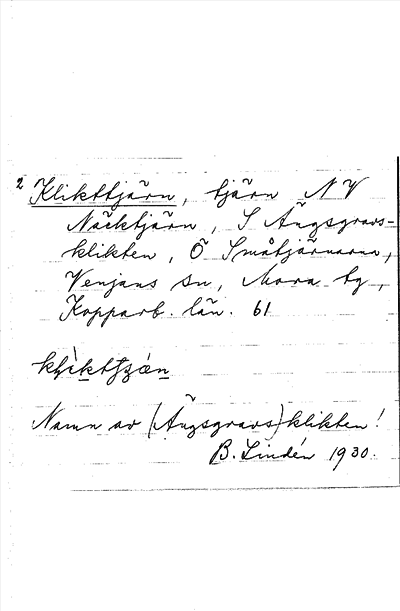 2 Klikttjärn, tjärn NV
Näcktjärn, S Ängsgravs-
klikten, Ö Småtjärnarna,
Venjans sn, Mora tg,
Kopparb. län. 61
Namn av (Ängsgravs)klikten!
B. Lindén 1930.